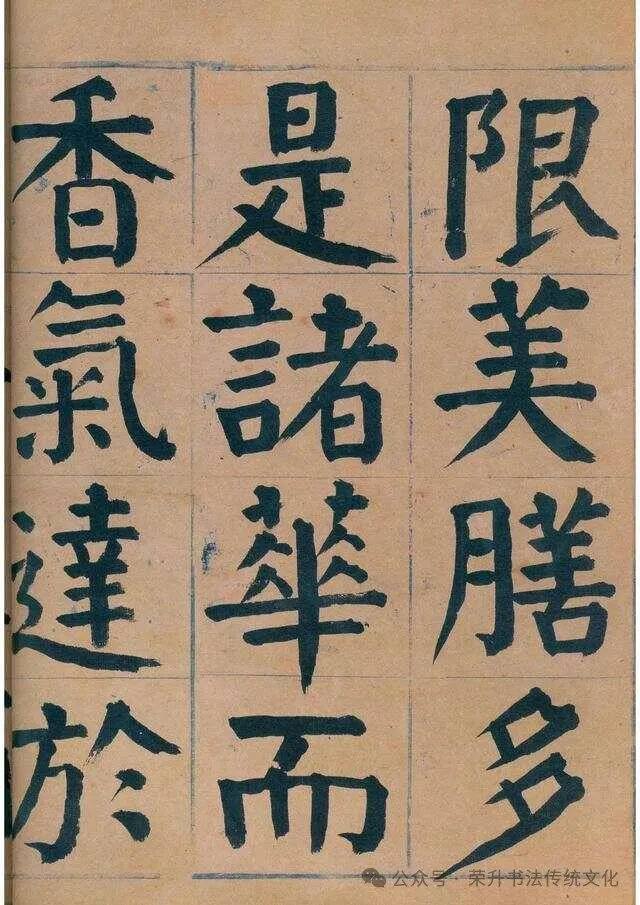 限美膳多
是諸華而
香氣達於
公众号·荣升书法传统文化